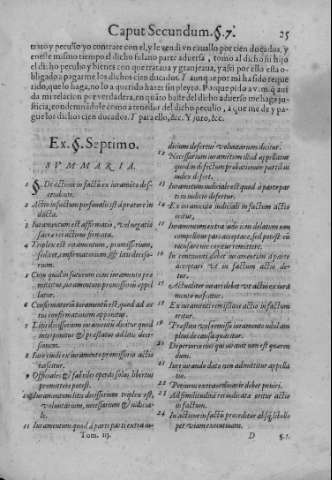 Caput Secundum. §. 7. 25
trato y peruiso yo contrate con el, y le vendi vn cauallo por cien ducados, y
en este mismo tiempo el dicho fulano parte aduersa, tomo al dicho su hijo
el dicho peculio y bienes con que trataua y granjeaua, y assi por ello esta o-
bligado a pagarme los dichos cien ducados. Y aunque por mi ha sido reque
rido, que lo haga, no lo a querido hazer sin pleyto. Porque pido a v. m. q aui
da mi relacion por verdadera, en quāto baste del dicho aduerso me haga ju-
sticia, condennandole como a tenedor del dicho peculio, a que me de y pa-
gue los dichos cien ducados. Y para ello, &c. Y juro, &c.
Ex. §. Septimo.
SVMMARIA.
1 §. De actione in factū ex iuramēto des-
cendente.
2 Actio in factum personalis est & prætore in
ducta.
3 Iuramentum est affirmatio, vel negatio
sacræ rei attestatione firmata.
4 Triplex est iuramentum, promissorium,
scilicet, confirmatorium, & litis deciso-
rium.
5 Cum quid in futurum cum iuramento pro
mittitur, iuramentum promissoriū appel
latur.
6 Confirmatoriū iuramentū est, quod ad ac
tus confirmationem apponitur.
7 Litis decissorium iuramentū dicitur quod
interponitur & præstatur ad litis deci-
sionem.
8 Iure ciuili ex iuramēto promissorio actio
nascitur.
9 Officiales & fabriles operas solus libertus
promittere potest.
10 Iuramentum litis decissorium triplex est,
voluntarium, necessarium & iudicia-
le.
11 Iuramentum quod à parte parti extra iu-
dicium defertur voluntarium dicitur.
12 Necessarium iuramentum illud appellatur
quod in defectum probationum parti à
iudice defert.
13 Iuramentum iudiciale est quod à parte par
ti in iudicio defertur.
14 Ex iuramēto iudiciali in factum actio
oritur,
15 Iuramentum extra iudiciū delatum non
compellitur pars acceptare, sed potest eū
recusare nec cogitur remittere.
16 In remittenti debet iuramentum à parte
acceptari vt in factum actio de-
tur.
17 Actualiter iurari debet vt actio ex iura
mento nascatur.
18 Ex iuramento remissionis actio in factum
oritur.
19 Præstans vel remissio iuramento nihil am
plius de causa quæritur.
20 De periurio eius qui iurauit non est quæren
dum.
21 Iure iurando dato non admittitur appella-
tio.
22 Periurus extraordinariè debet puniri.
23 Ad similitudinē rei iudicatæ oritur actio
in factum.
24 In actione in factū proceditur absq; libello
per viam executiuam.
Tom. iij. D §. 1.